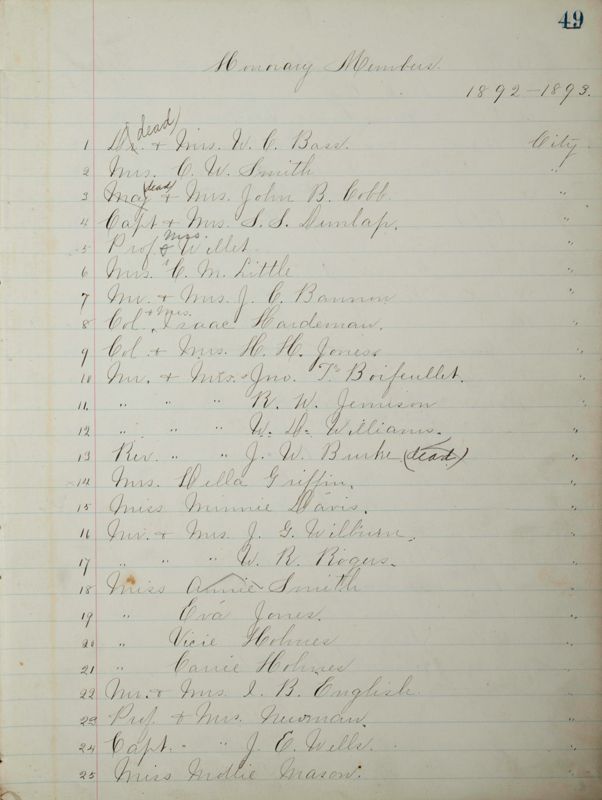 49
Honorary Members.
1892-1893.
dead
1 Dr. & Mrs. W. C. Bass. City
2 Mrs. C. W. Smith "
dead
3 Maj & Mrs. John B. Cobb "
4 Capt & Mrs. S. S. Dunlap. "
Miss.
5 Prof. & Willet "
6 Mrs. C. M. Little "
7 Mr. & Mrs. J. C. Bannon "
& Mrs.
8 Col. Isaac Hardeman. "
9 Col. & Mrs. H. H. Jones. "
10 Mr. & Mrs. Jno. T. Boifeullet. "
11 " " " R. W. Jemison "
12 " " " W. D. Williams. "
13 Rev. " " J. W. Burke (dead) "
14 Mrs. Hella Griffin. "
15 Miss Minnie Davis. "
16 Mr. & Mrs. J. G. Wilburn. "
17 " " " W. R. Rogers. "
18 Miss Annie Smith "
19 " Eva Jones. "
20 " Vicie Holmes "
21 " Carrie Holmes "
22 Mr. & Mrs. I. B. English. "
23 Prof. & Mrs. Newman. "
24 Capt. " " J. E. Wells. "
25 Miss Mollie Mason. "